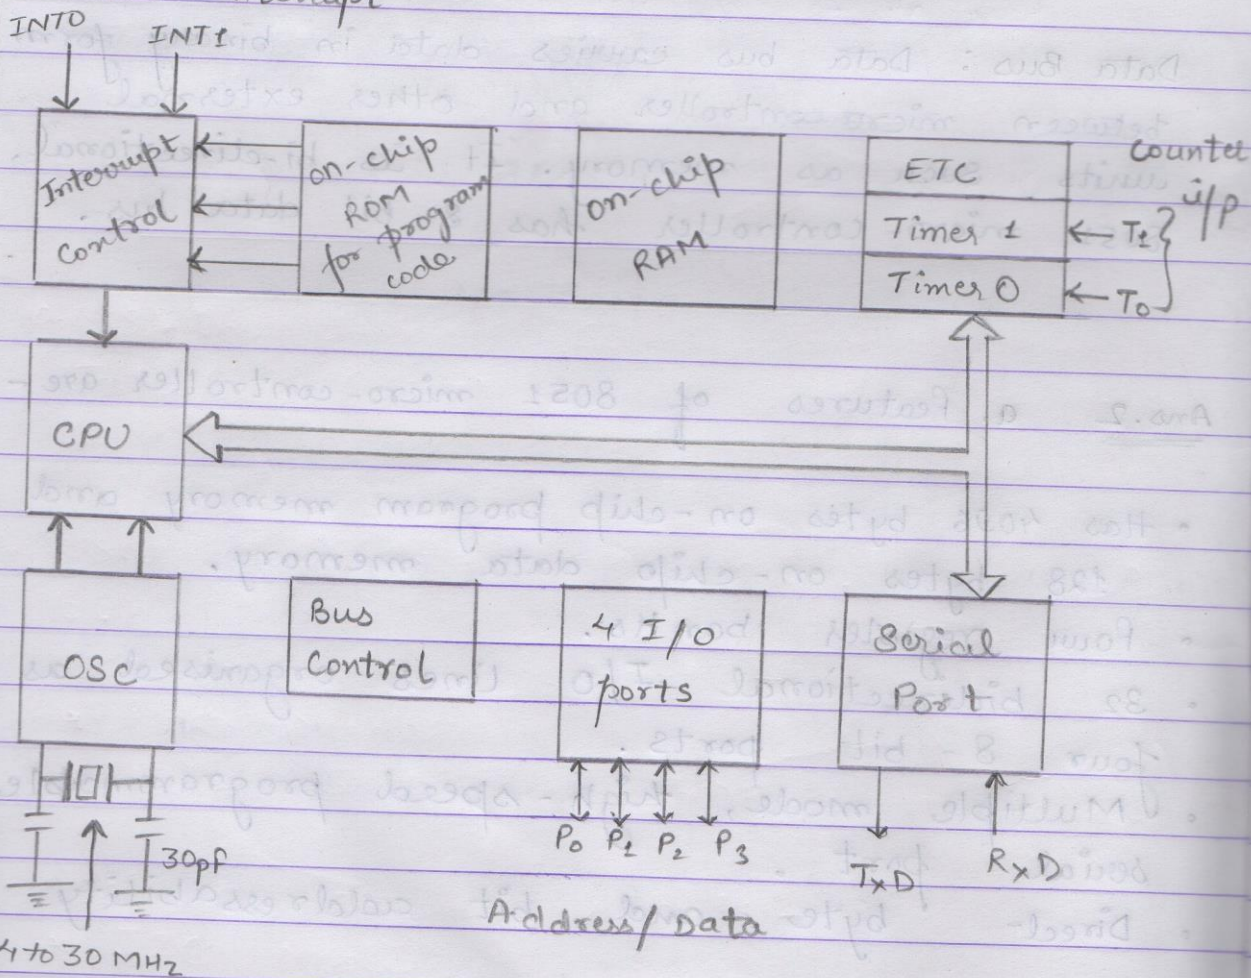 INT0
INT1
Interrupt
Control
on-chip
ROM
for program
code
on-chip
RAM
ETC
Timer 1
Timer 0
Counter
i/p
T1
T0
CPU
OSC
Bus
Control
4 I/O
ports
Serial
Port
P0 P1 P2 P3
TxD
RxD
30pf
Address/Data
4 to 30 MHz